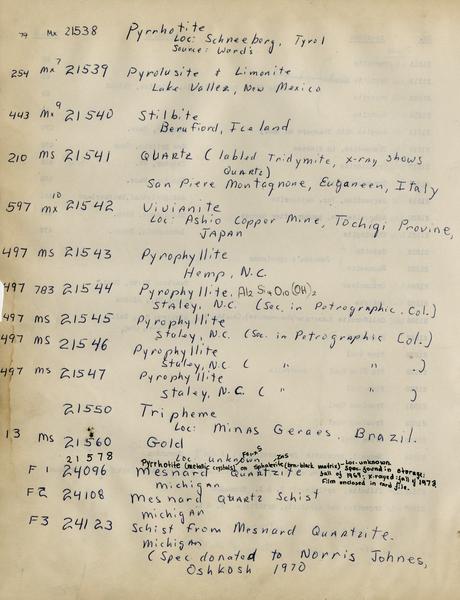 79 Mx 21538 Pyrrhotite
Loc: Schneeberg, Tyrol
Source: Ward's
254 mx7 21539 Pyrolusite & Limonite
Lake Valley, New Mexico
443 mx9 21540 Stilbite
Berufiord, Iceland
210 ms 21541 QUARTZ (labled Tridymite, x-ray shows
QUARTZ)
San Piere Montagnone, Euganeen, Italy
597 mx10 21542 Vivianite
Loc: Ashio Copper Mine, Tochigi Provine,
JAPAN
497 ms 21543 Pyrophyllite
Hemp, N.C.
497 783 21544 Pyrophyllite. Al2 Si4 O10(OH)2
Staley, N.C. (Soc. in Petrographic. Col.)
497 ms 21545 Pyrophyllite
Staley, N.C. (Soc. in Petrographic Col.)
497 ms 21546 Pyrophyllite
Staley, N.C. ( " " .)
497 ms 21547 Pyrophyllite
Staley, N.C. ( " " .)
21550 Tripheme
Loc: Minas Geraes, Brazil.
13 ms 21560 Gold
Loc: unknown
21578 Pyrrhotite (metallic crystals) on sphalerite (brn-black matrix) - Loc. unknown.
Spec. found in storage:
fall of 1969; x-rayed: fall of 1978
Film enclosed in card file.
F1 24096 Mesnard Quartzite
michigan
F2 24108 Mesnard QUARTZ Schist
michigan
F3 24123 Schist from Mesnard Quartzite.
michigan
(Spec donated to Norris Johnes,
Oshkosh 1970